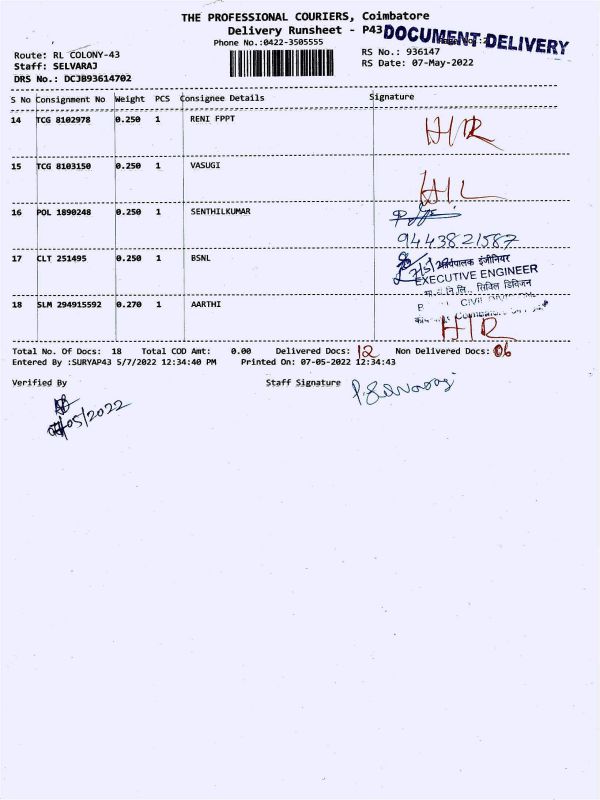 THE PROFESSIONAL COURIERS, Coimbatore
Delivery Runsheet - P43
DOCUMENT DELIVERY
Phone No.:0422-3505555
Route: RL COLONY-43
RS No.: 936147
Staff: SELVARAJ
RS Date: 07-May-2022
DRS No.: DCJB93614702
S No Consignment No Weight PCS Consignee Details Signature
14 TCG 8102978 0.250 1 RENI FPPT
15 TCG 8103150 0.250 1 VASUGI
16 POL 1890248 0.250 1 SENTHILKUMAR
9443821587
17 CLT 251495 0.250 1 BSNL
कार्यपालक इंजीनियर
EXECUTIVE ENGINEER
सिविल डिविजन
18 SLM 294915592 0.270 1 AARTHI
Total No. Of Docs: 18 Total COD Amt: 0.00 Delivered Docs: 12 Non Delivered Docs: 06
Entered By :SURYAP43 5/7/2022 12:34:40 PM Printed On: 07-05-2022 12:34:43
Verified By Staff Signature P. Selvaraj
/05/2022